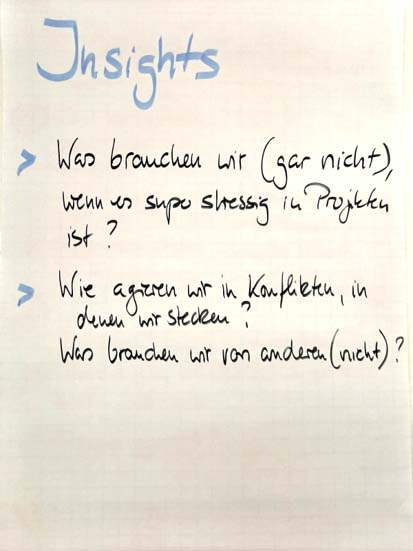 Insights
> Was brauchen wir (gar nicht),
wenn es supe stressig in Projekten
ist?
> Wie agieren wir in Konflikten, in
denen wir stecken?
Was brauchen wir von anderen (nicht)?